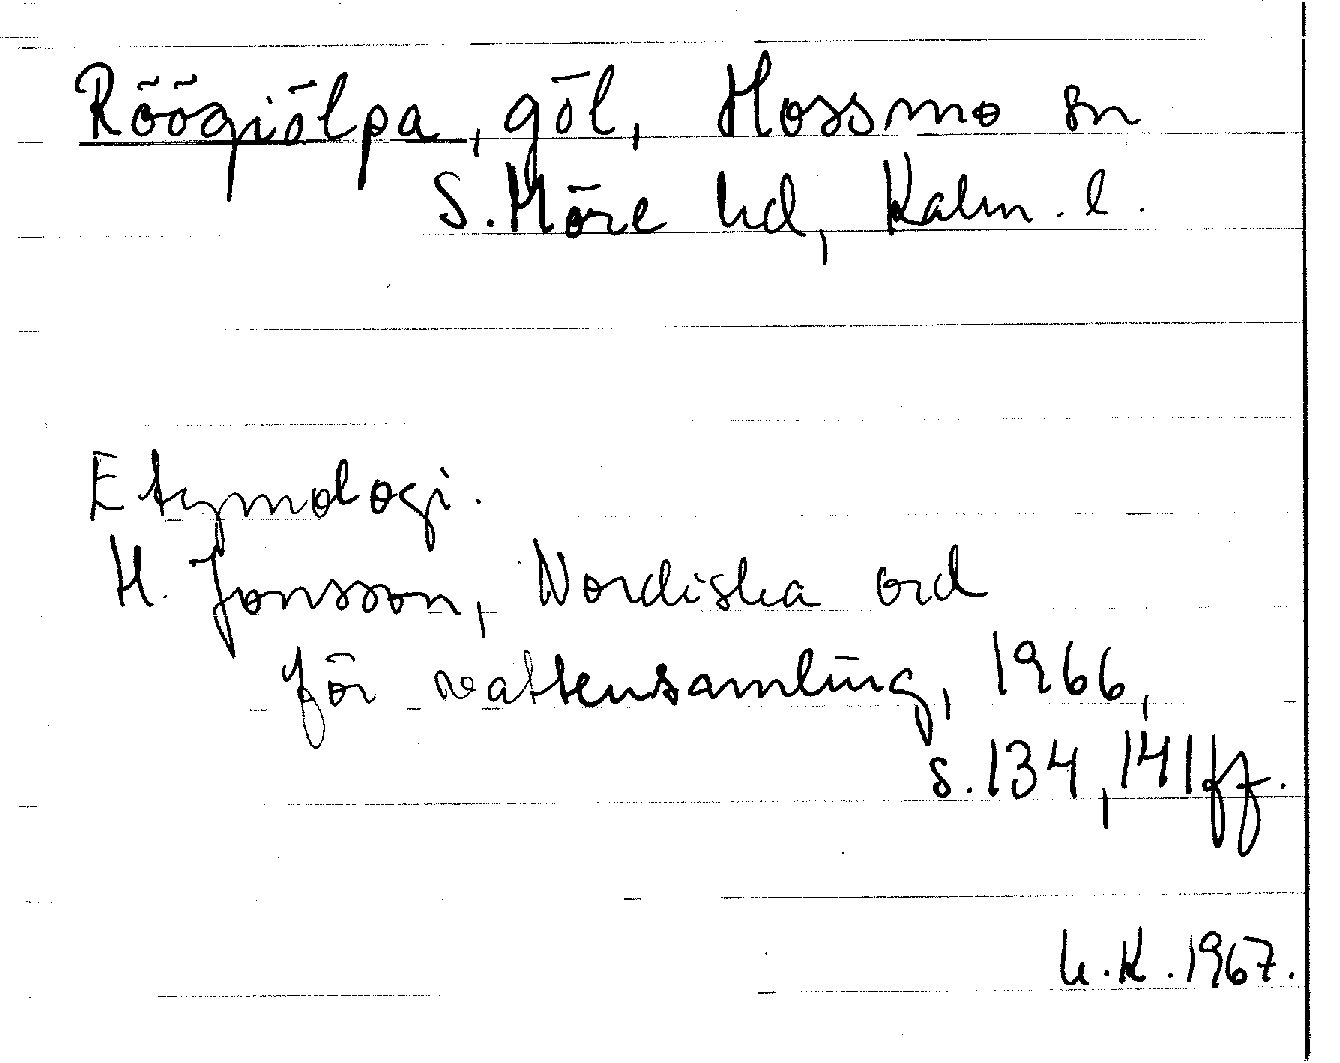 Röögiölpa, göl, Hossmo sn
S. Möre hd, Kalm. l.
Etymologi.
H. Jonsson, Nordiska ord
för vattensamling, 1966,
s. 134, 141 ff.
K. 1967.